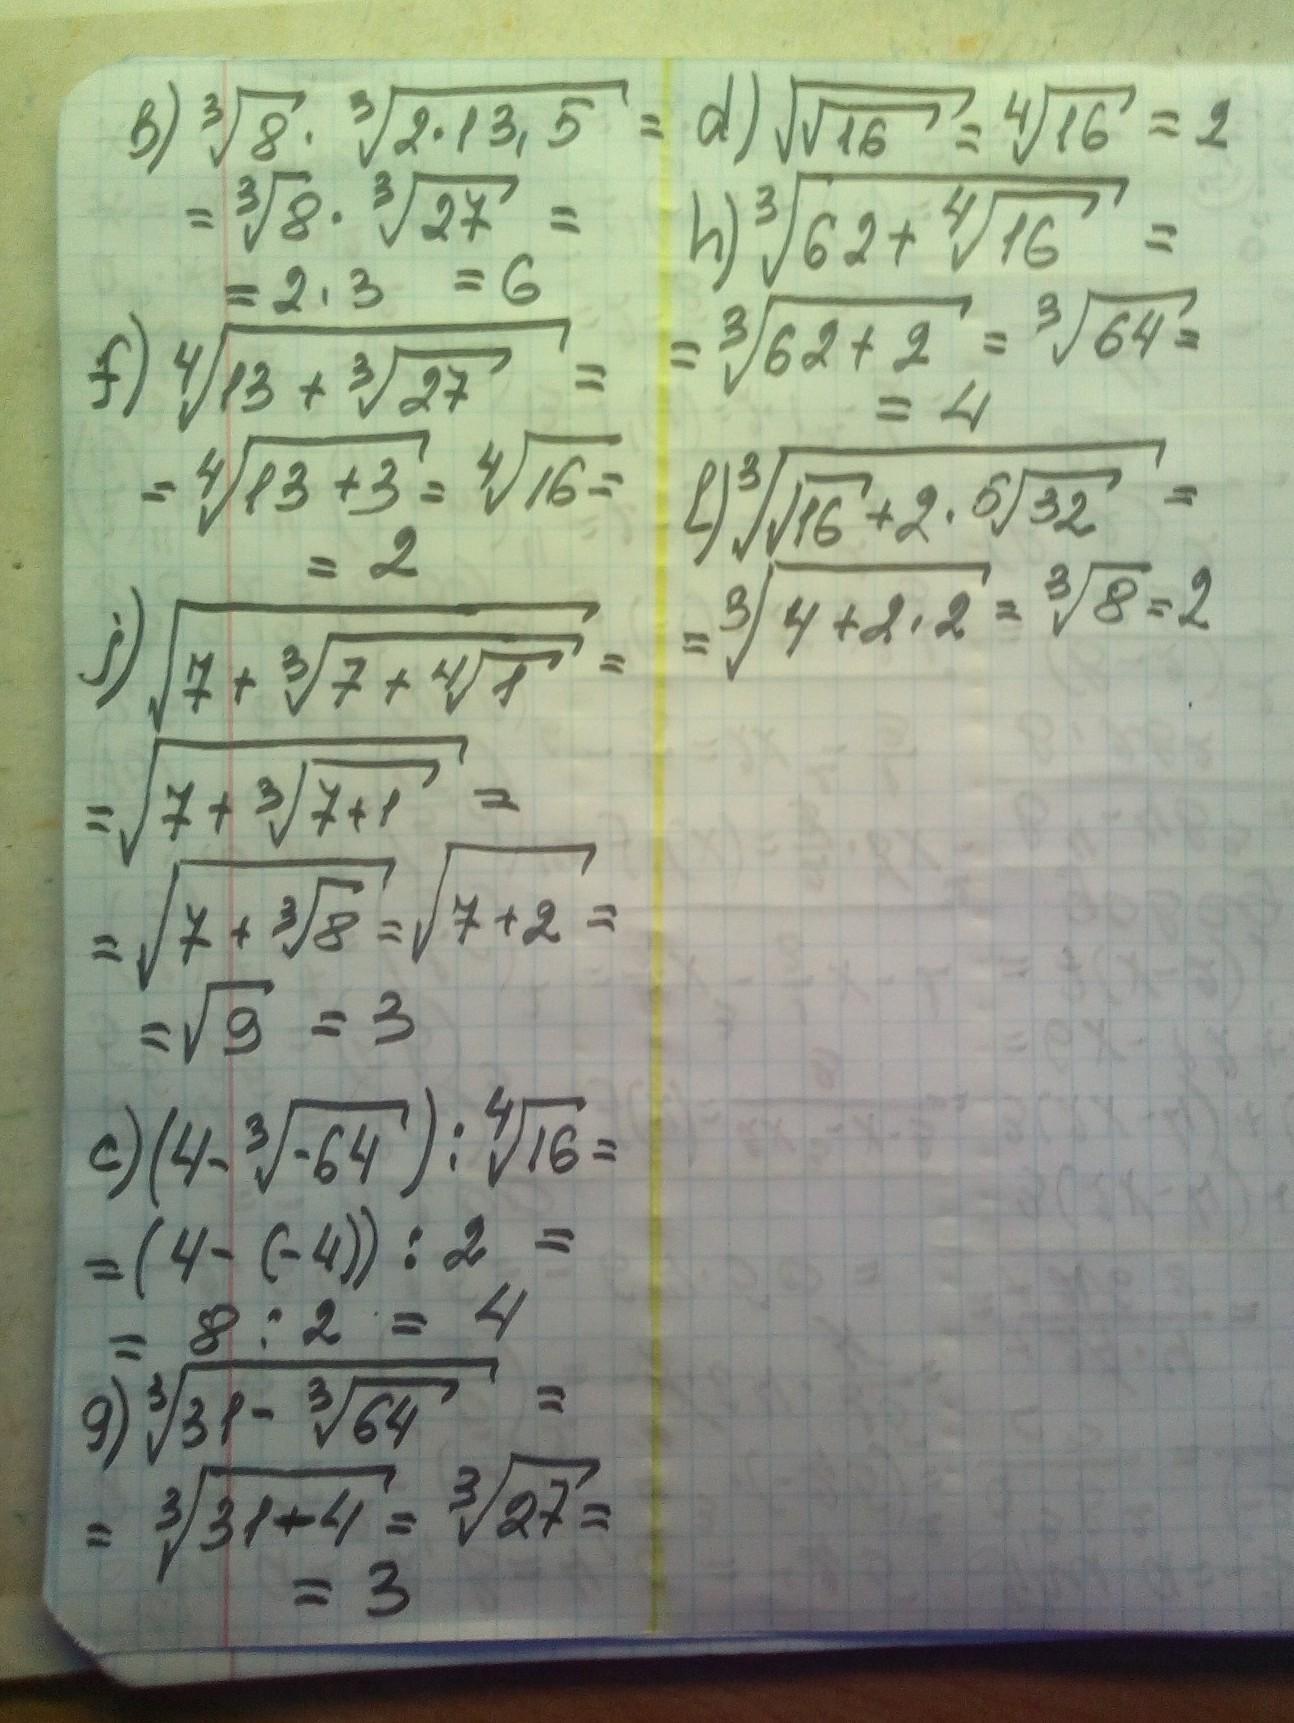 в) ³√8 · ³√(2·13,5) =
= ³√8 · ³√27 =
= 2·3 = 6
f) ⁴√(13 + ³√27) =
= ⁴√(13 + 3) = ⁴√16 =
= 2
j) √(7 + ³√(7 + ⁴√1)) =
= √(7 + ³√(7+1)) =
= √(7 + ³√8) = √(7+2) =
= √9 = 3
c) (4 - ³√-64) : ⁴√16 =
= (4 - (-4)) : 2 =
= 8 : 2 = 4
g) ³√(31 - ³√64) =
= ³√(31+4) = ³√27 =
= 3
d) √√16 = ⁴√16 = 2
h) ³√(62 + ⁴√16) =
= ³√(62 + 2) = ³√64 =
= 4
l) ³√(√16 + 2 · ⁵√32) =
= ³√(4 + 2·2) = ³√8 = 2